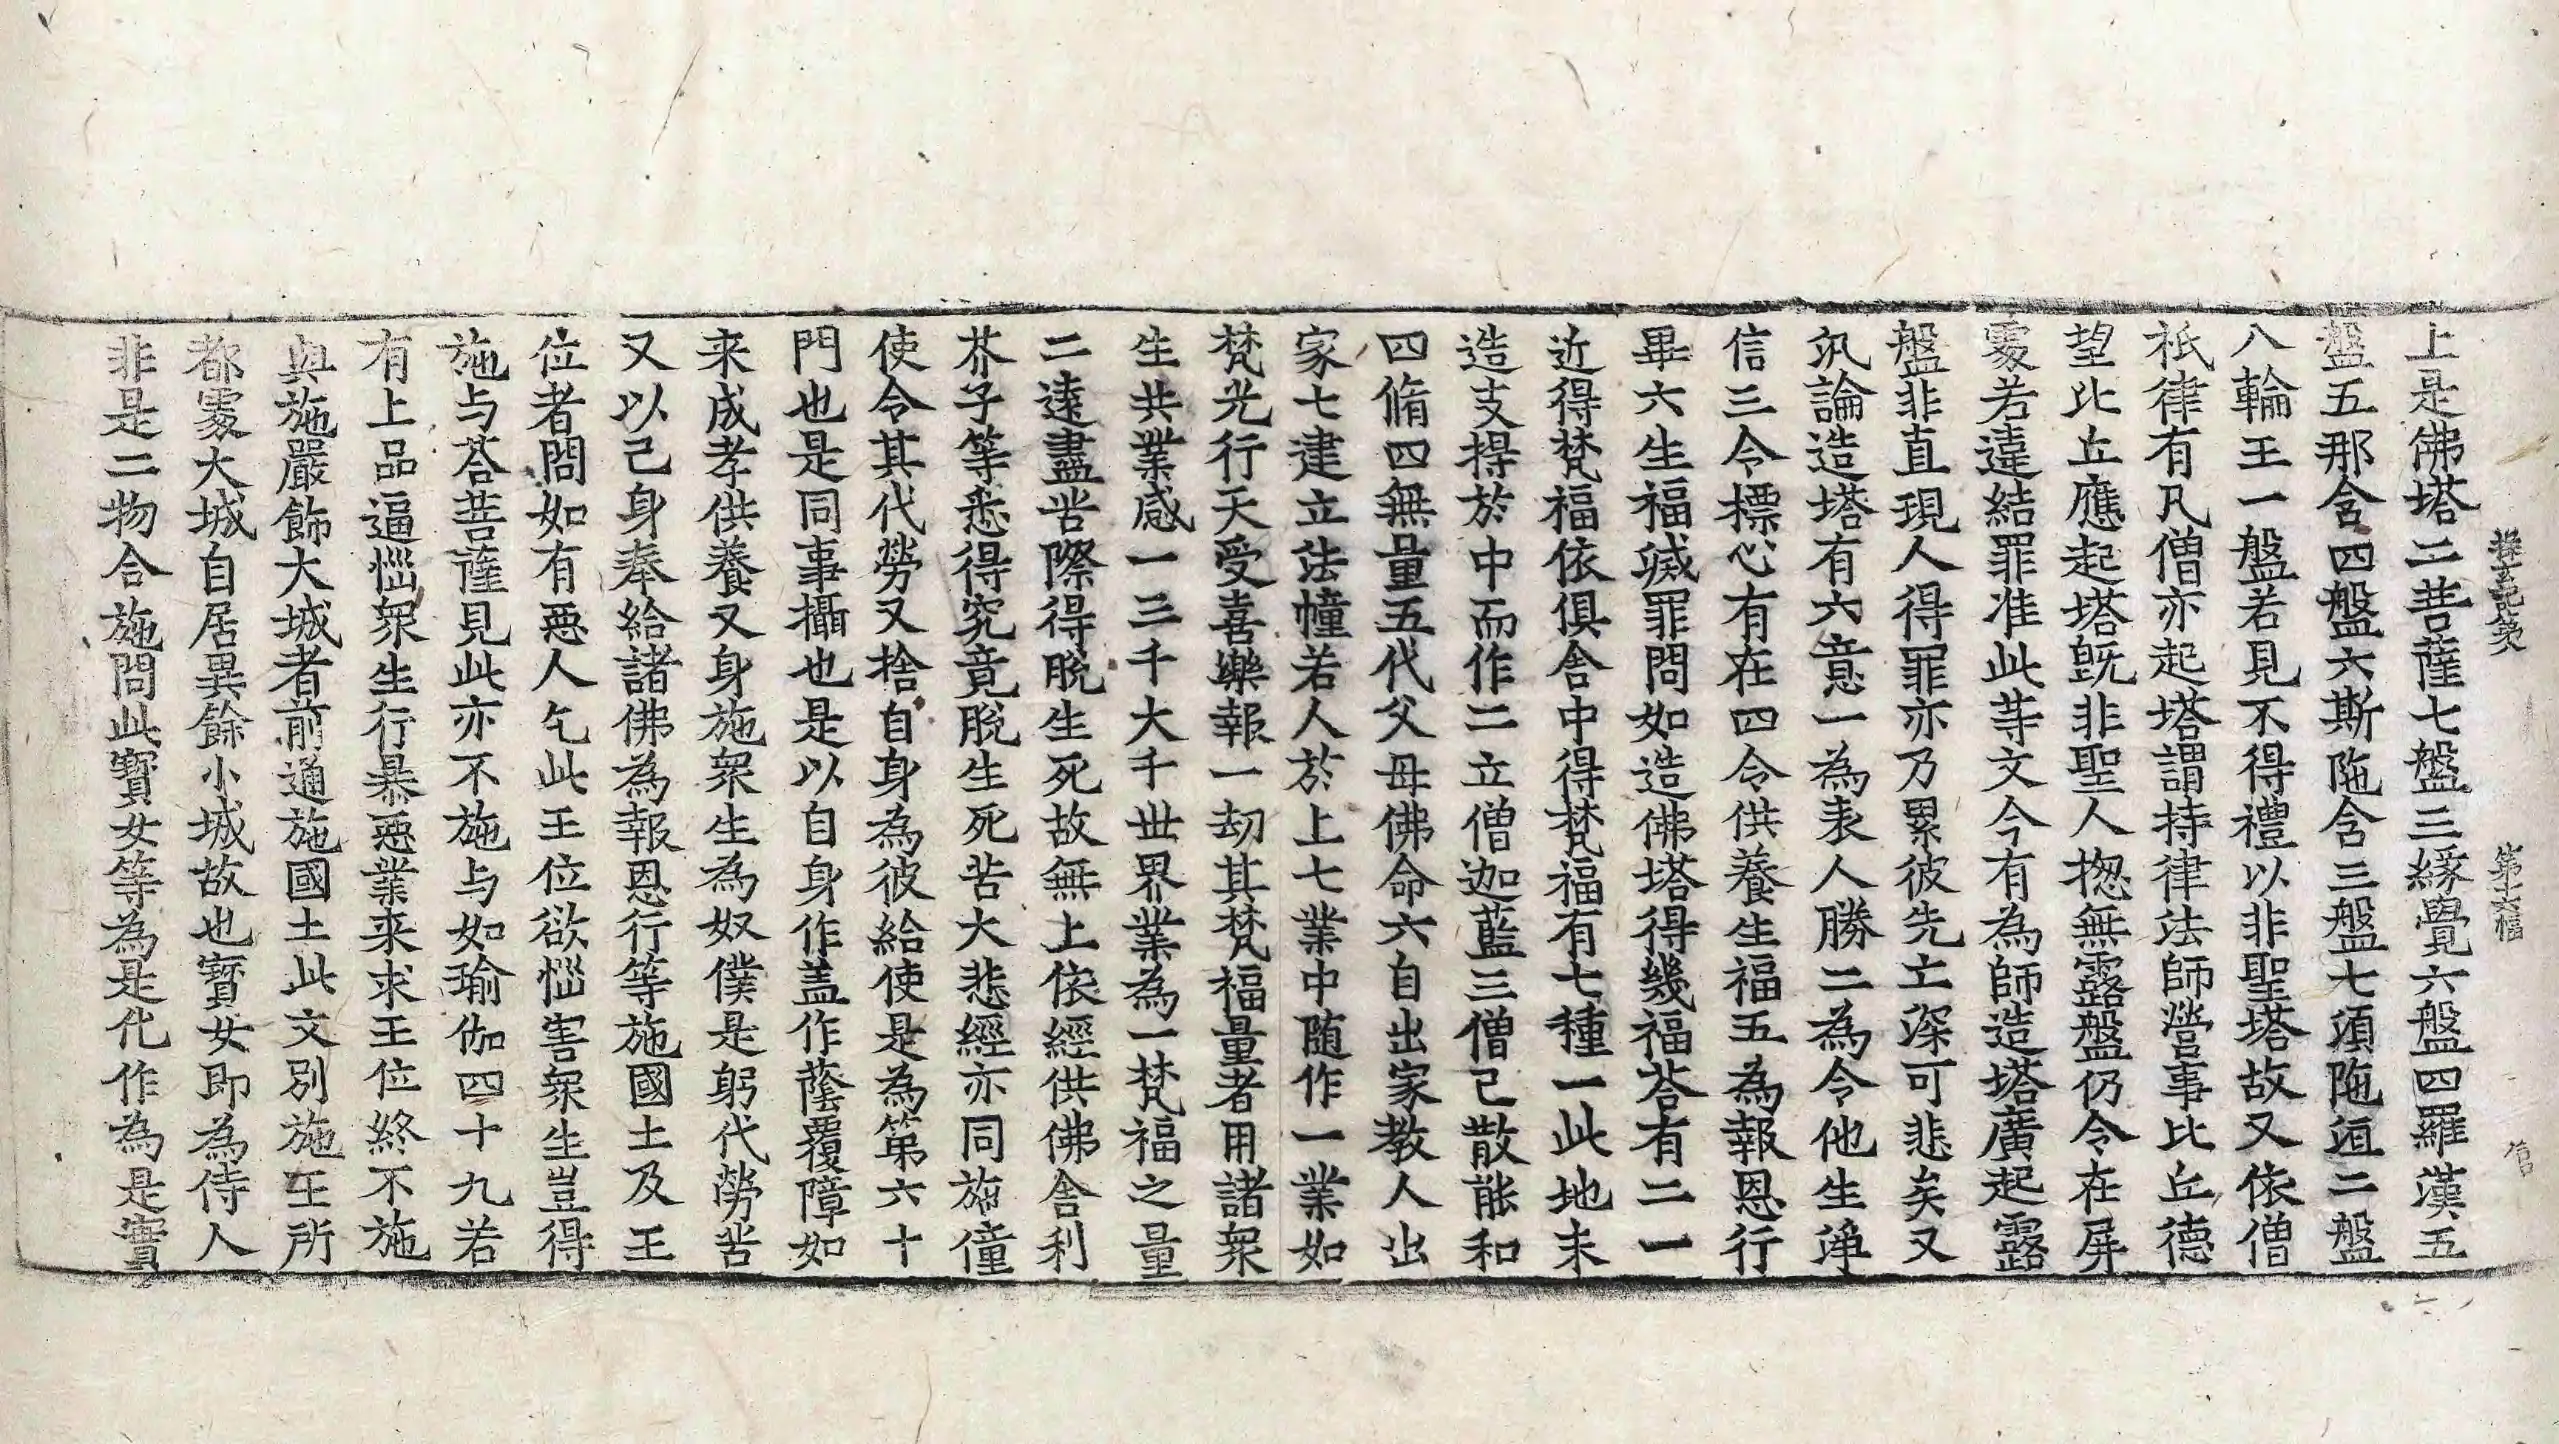 探玄記八第 第十六幅 官
上是佛塔二菩薩七盤三緣覺六盤四羅漢五
盤五那含四盤六斯陁含三盤七須陁洹二盤
八輪王一盤若見不得禮以非聖塔故又依僧
祇律有凡僧亦起塔謂持律法師營事比丘德
望比丘應起塔旣非聖人揔無露盤仍令在屏
處若違結罪准此等文今有為師造塔廣起露
盤非直現人得罪亦乃累彼先亡深可悲矣又
汎論造塔有六意一為表人勝二為令他生淨
信三令摽心有在四令供養生福五為報恩行
畢六生福滅罪問如造佛塔得幾福荅有二一
近得梵福依俱舍中得梵福有七種一此地未
造支提於中而作二立僧迦藍三僧已散能和
四脩四無量五代父母佛命六自出家教人出
家七建立法幢若人於上七業中隨作一業如
梵光行天受喜樂報一劫其梵福量者用諸衆
生共業感一三千大千世界業為一梵福之量
二遠盡苦際得脫生死故無上依經供佛舍利
芥子等悉得究竟脫生死苦大悲經亦同施僮
使令其代勞又捨自身為彼給使是為第六十
門也是同事攝也是以自身作盖作蔭覆障如
来成孝供養又身施衆生為奴僕是躬代勞苦
又以己身奉給諸佛為報恩行等施國土及王
位者問如有惡人乞此王位欲惱害衆生豈得
施与荅菩薩見此亦不施与如瑜伽四十九若
有上品逼惱衆生行暴惡業来求王位終不施
與施嚴飾大城者前通施國土此文別施王所
都處大城自居異餘小城故也寳女即為侍人
非是二物合施問此寳女等為是化作為是實